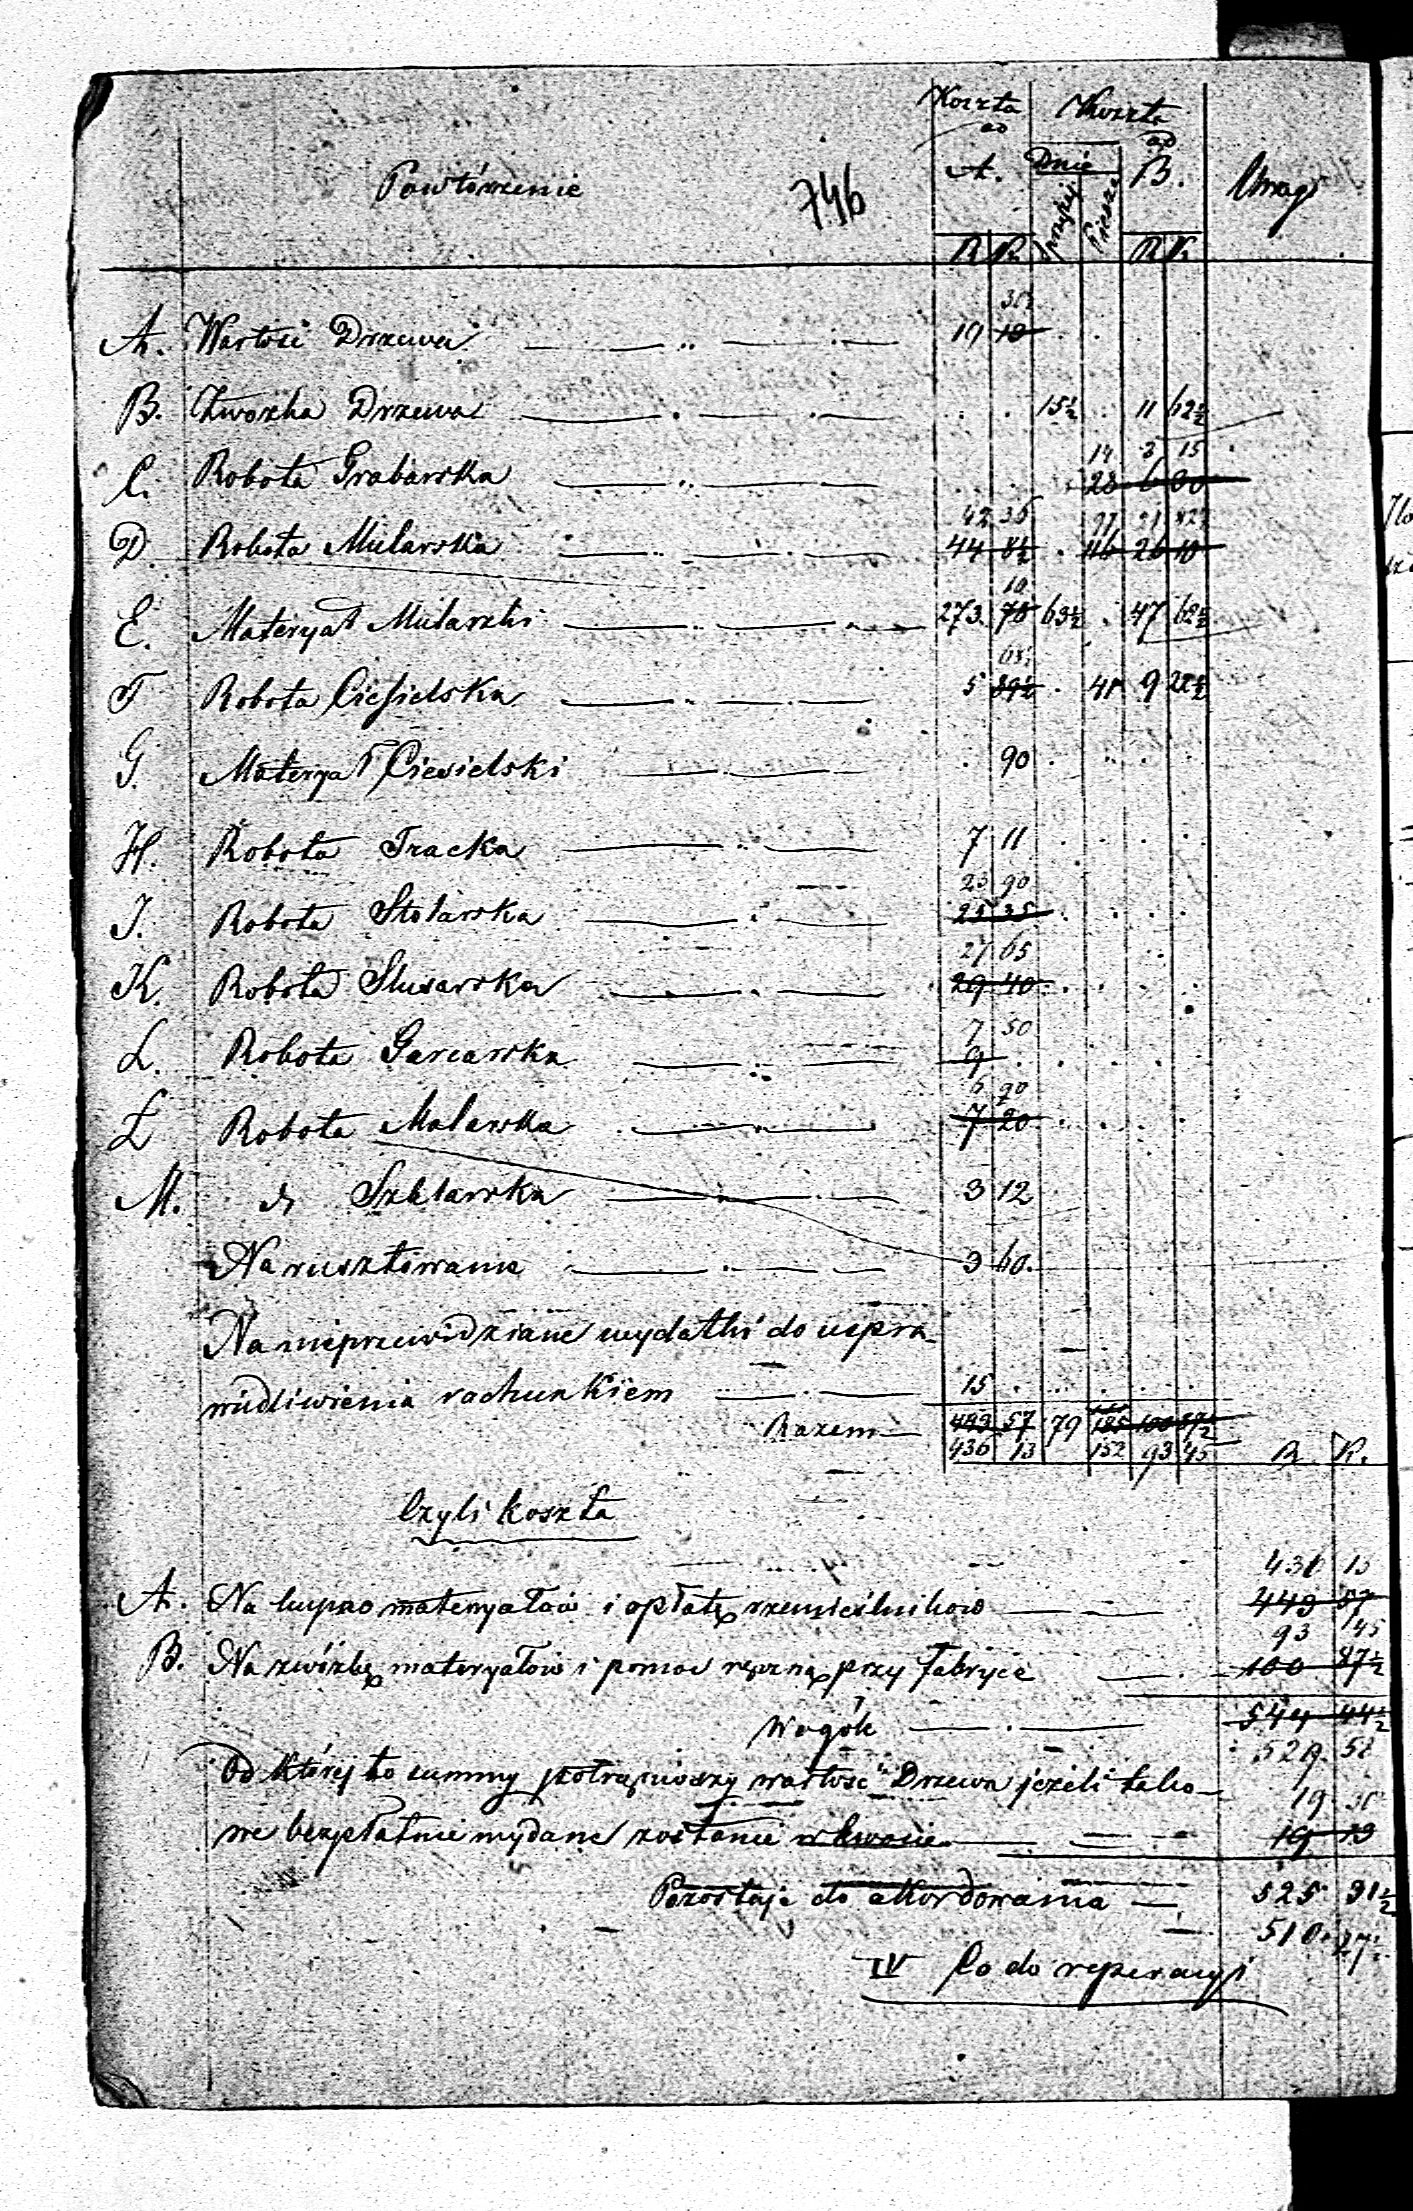 Koszta Koszta
ad ad
Powtórzenie 746 A. Dnie B. Uwagi
ciągłej Piesze
R K R K
30½
A. Wartość Drzewa 19 18
B. Zwózka Drzewa 15½ 11 62½
14 3 15
C. Robota Grabarska 28 6 30
42 36 97 21 82½
D. Robota Mularska 44 8½ 116 26 10
10
E. Materyał Mularski 273 78 63½ 47 62½
68½
F Robota Ciesielska 5 89½ 41 9 22½
G. Materyał Ciesielski 90
H. Robota Tracka 7 11
23 90
I. Robota Stolarska 25 35
27 65
K. Robota Slusarska 29 40
7 50
L. Robota Garcarska 9
6 90
Ł Robota Malarska 7 20
M. dt Szklarska 3 12
Na rusztowania 3 60
Na nieprzewidziane wydatki do uspra-
widliwienia rachunkiem 15
Razem 443 57 79 185 100 87½
436 13 152 93 45 R. K.
Czyli koszta
436 13
A. Na kupno materyałów i opłatę rzemieślników 443 57
93 45
B. Na zwózkę materyałów i pomoc ręczną przy fabryce 100 87½
Wogóle 544 44½
529 58
Od której to summy potrąciwszy wartość Drzewa jeżeli tako- 19 30
we bezpłatnie wydane zostanie w kwocie 19 13
Pozostaje do akordowania 525 31½
510 27½
IV Co do reperacyi